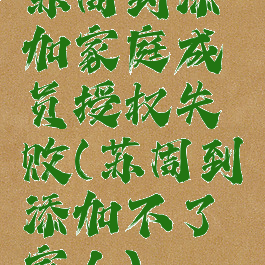 苏周到添
加家庭成
员授权失
败(苏周到
添加不了
家人)